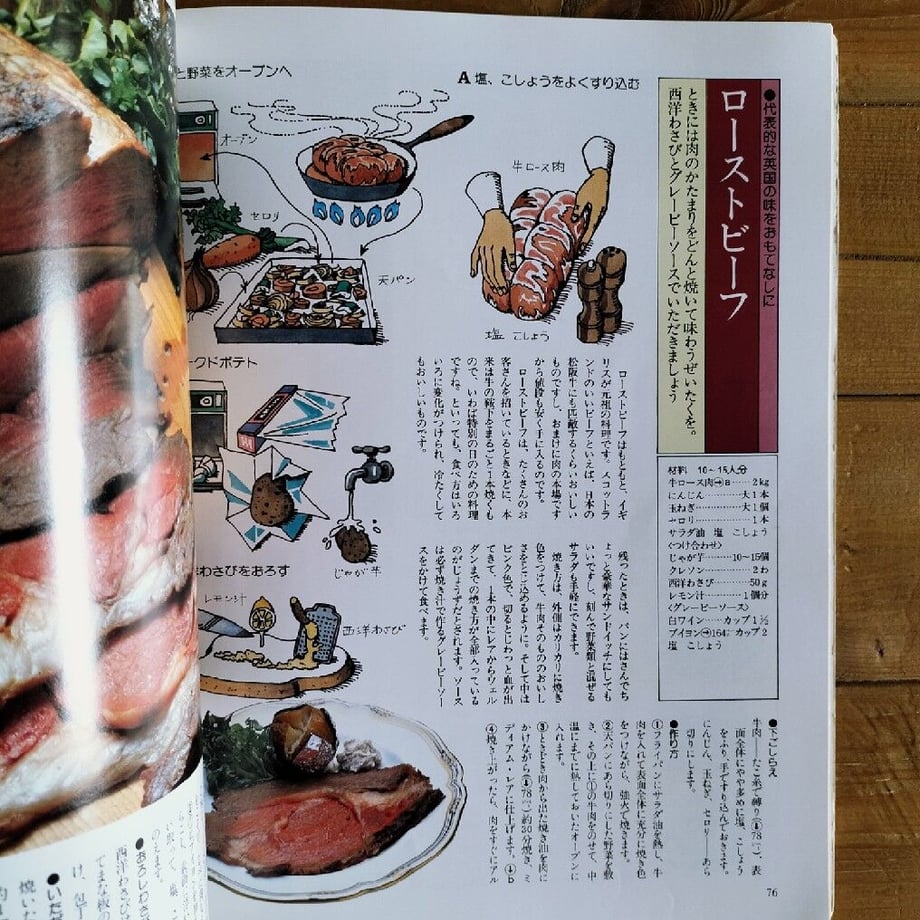 ●代表的な英国の味をおもてなしに
ローストビーフ
ときには肉のかたまりをどんと焼いて味わうぜいたくを。
西洋わさびとグレービーソースでいただきましょう
材料 10〜15人分
牛ロース肉➡a……2kg
にんじん…………大1本
玉ねぎ……………大1個
セロリ……………1本
サラダ油 塩 こしょう
〈つけ合わせ〉
じゃが芋………10〜15個
クレソン…………2わ
西洋わさび………50g
レモン汁…………1個分
〈グレービーソース〉
白ワイン……カップ1½
ブイヨン➡164㌻ カップ2
塩 こしょう
A 塩、こしょうをよくすり込む
牛ロース肉
塩 こしょう
と野菜をオーブンへ
オーブン
セロリ
天パン
クドポテト
じゃが芋
わさびをおろす
レモン汁
西洋わさび
ローストビーフはもともと、イギ
リスが元祖の料理です。スコットラ
ンドのいいビーフといえば、日本の
松阪牛にも匹敵するくらいおいしい
ものですし、おまけに肉の本場です
から値段も安く手に入るのです。
ローストビーフは、たくさんのお
客さんを招いているときなどに、本
来は牛の鞍下をまるごと1本焼くも
ので、いわば特別の日のための料理
ですね。といっても、食べ方はいろ
いろに変化がつけられ、冷たくして
もおいしいものです。
残ったときは、パンにはさんでち
ょっと豪華なサンドイッチにしても
いいですし、刻んで野菜類と混ぜる
サラダも手軽にできます。
焼き方は、外側はカリカリに焼き
色をつけて、牛肉そのもののおいし
さをとじ込めるように。そして中は
ピンク色で、切るとじわっと血が出
てきて、1本の中にレアからウェル
ダンまでの焼き方が全部入っている
のがじょうずだとされます。ソース
は必ず焼き汁で作るグレービーソー
スをかけて食べます。
●下ごしらえ
牛肉——たこ糸で縛り(➡78㌻)、表
面全体にやや多めに塩、こしょう
をふり、手ですり込んでおきます。
にんじん、玉ねぎ、セロリ——あら
切りにします。
●作り方
①フライパンにサラダ油を熱し、牛
肉を入れて表面全体に充分に焼き色
をつけながら、強火で焼きます。
②天パンにあら切りにした野菜を敷
き、その上に①の牛肉をのせて、中
温にまでに熱しておいたオーブンに
入れます。
③ときどき肉から出た焼き油を肉に
かけながら(➡78㌻)約30分焼き、ミ
ディアム・レアに仕上げます。➡b
④焼き上がったら、肉をすぐにアル
76
●おろしわさび
西洋わさび
のえます。